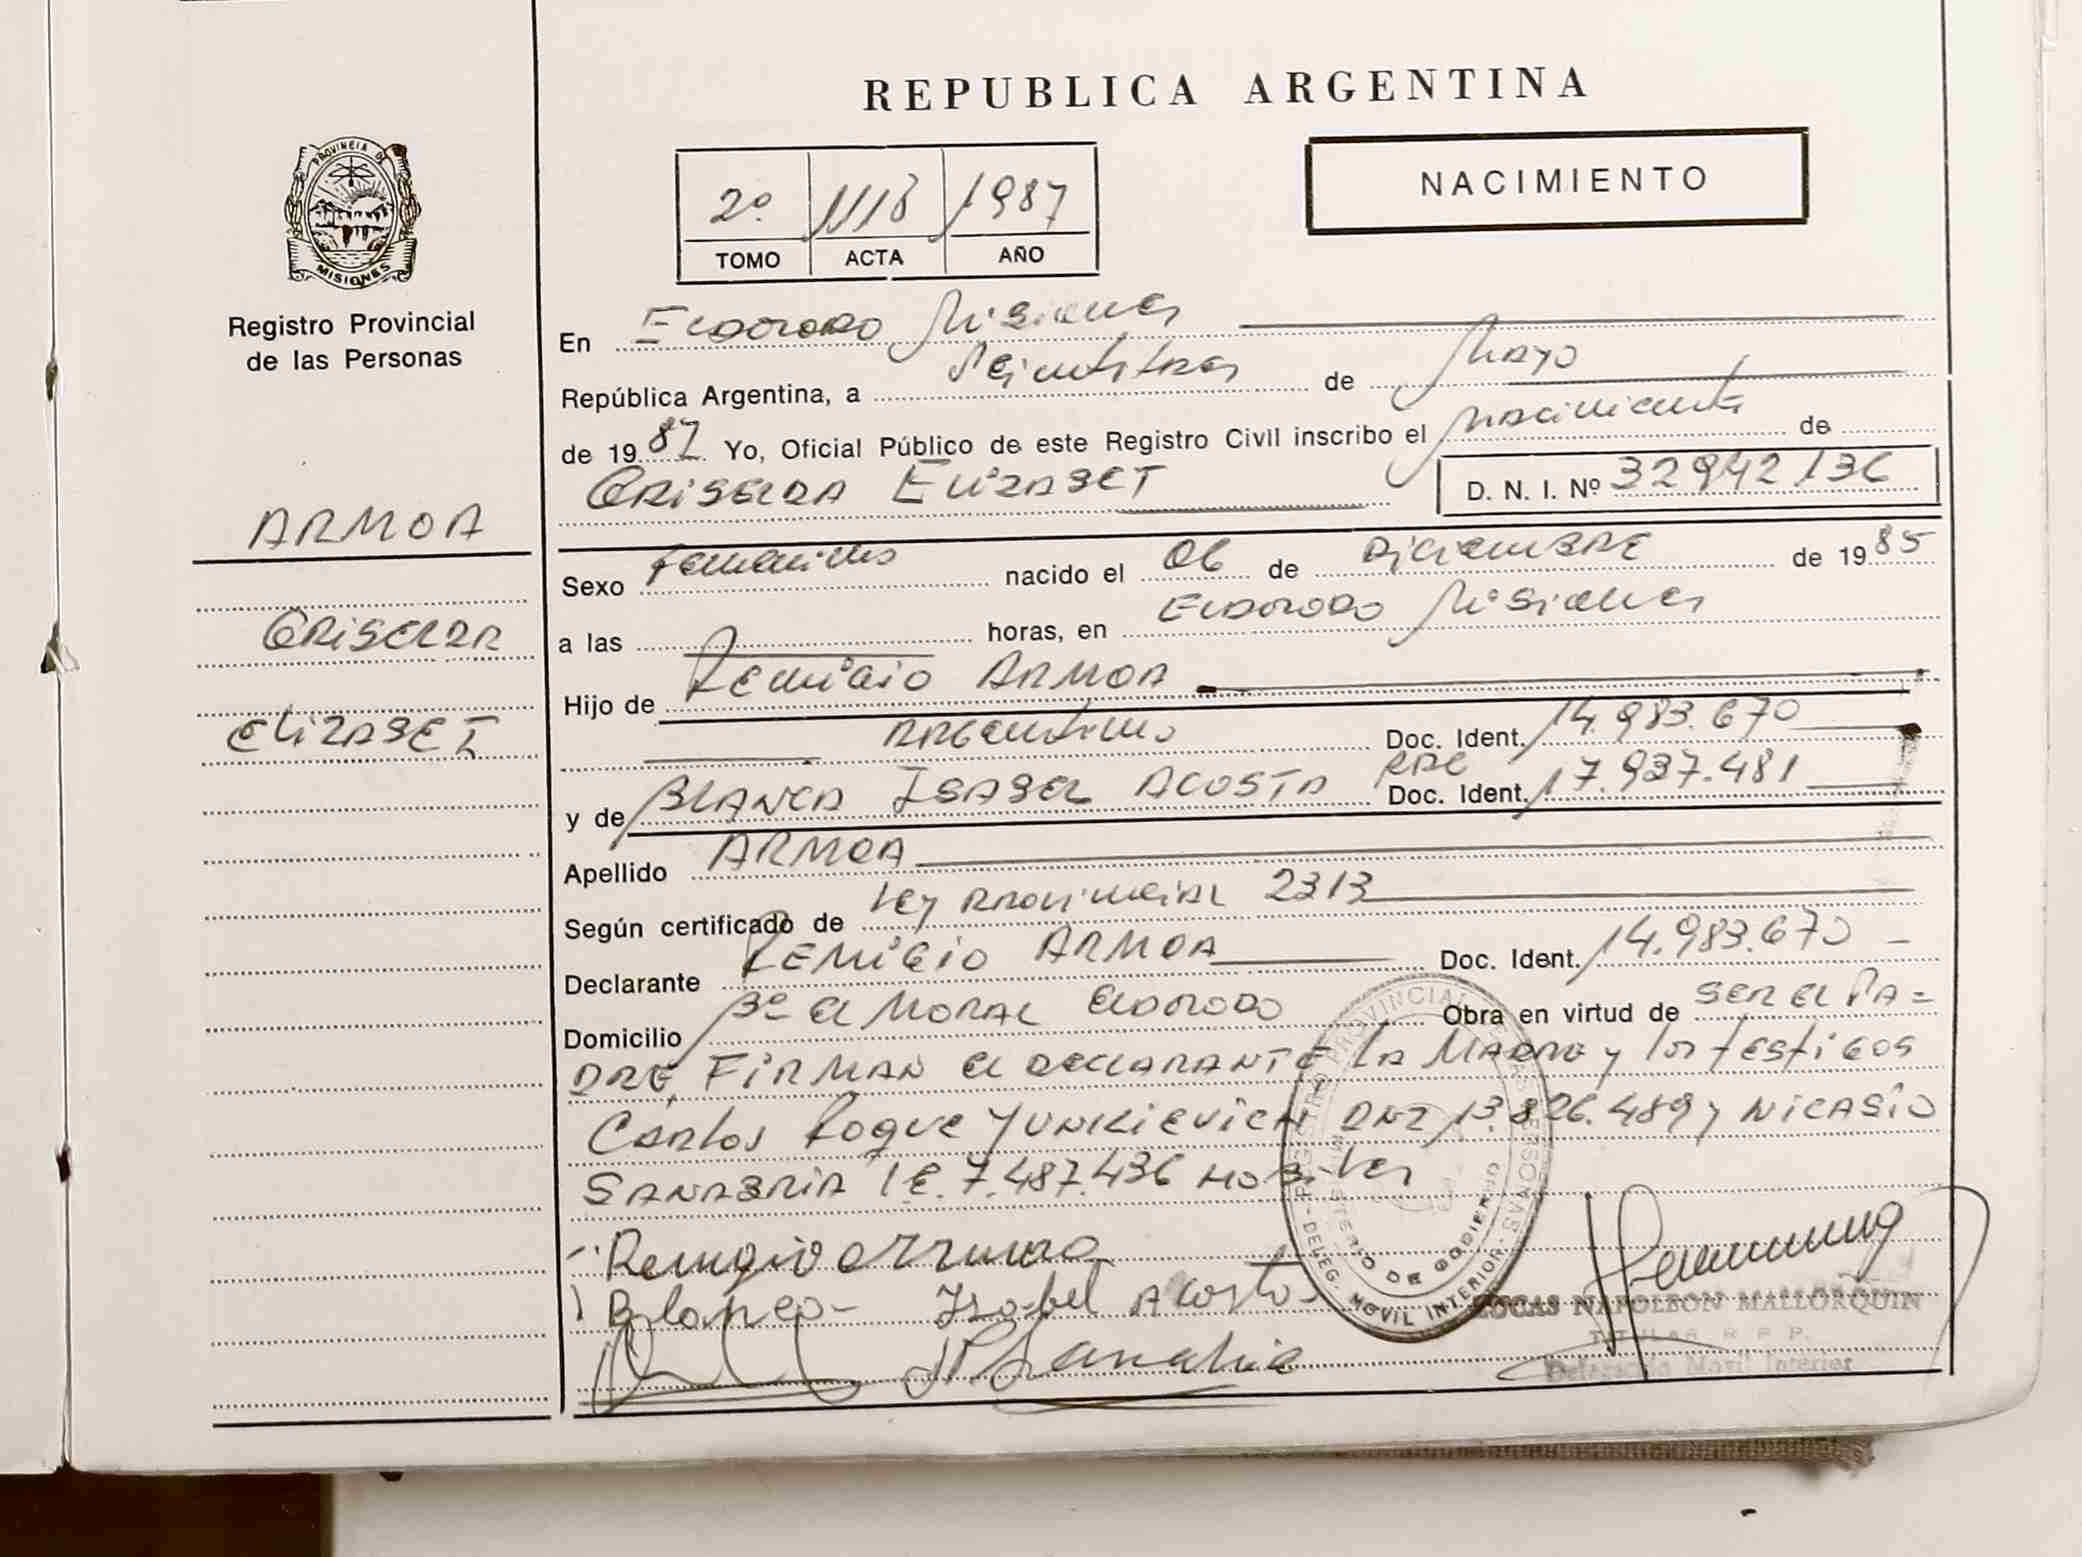 REPUBLICA ARGENTINA
NACIMIENTO
2º 1118 1987
TOMO ACTA AÑO
PROVINCIA DE
MISIONES
Registro Provincial
de las Personas
ARMOA
GRISELDA
ELIZABET
En ELDORADO Misiones
República Argentina, a Veintitres de Mayo
de 1987 Yo, Oficial Público de este Registro Civil inscribo el Nacimiento de
GRISELDA ELIZABET D. N. I. Nº 32942136
Sexo Femenino nacido el 06 de DICIEMBRE de 1985
a las horas, en ELDORADO Misiones
Hijo de Remigio ARMOA
ARGentino Doc. Ident. 14.983.670
y de BLANCA ISABEL ACOSTA Doc. Ident. 17.937.481
Apellido ARMOA
Según certificado de Ley PROVINCIAL 2313
Declarante REMIGIO ARMOA Doc. Ident. 14.983.670
Domicilio Bº El MORAL ELDORADO Obra en virtud de SER EL PA=
DRE, FIRMAN el DECLARANTE, LA MADRE y los testigos
Carlos Roque YUNKIEVICH DNI 13.826.489 y NICASIO
SANABRIA LE. 7.487.436 Hobiles
Remigio Armoa
Blanca Isabel Acosta
N Sanabria
REGISTRO PROVINCIAL DE LAS PERSONAS
MINISTERIO DE GOBIERNO
DELEG. MOVIL INTERIOR
LUCAS NAPOLEON MALLORQUIN
TITULAR R. P. P.
Delegación Movil Interior